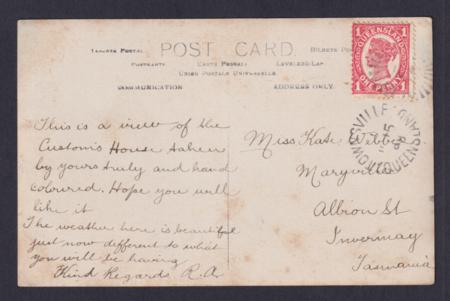 POST CARD.
UNION POSTALE UNIVERSELLE.
ADDRESS ONLY.
QUEENSLAND
1 1
ONE PENNY
QUEENSLAND
This is a view of the
Customs House taken
by yours truly and hand
coloured. Hope you will
like it
The weather here is beautiful
just now different to what
you will be having
Kind Regards R.A.
Miss Kate Webber
Maryville
Albion St
Invermay
Tasmania